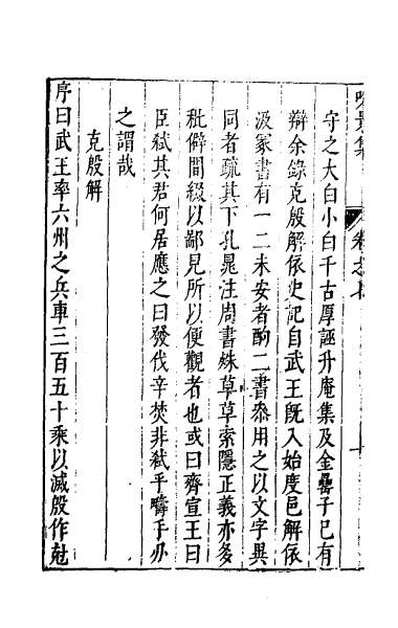 吹景集 卷之七
守之大白小白千古厚誣升庵集及金罍子已有
辯余錄克殷解依史記自武王既入始度邑解依
汲冢書有一二未安者酌二書叅用之以文字異
同者疏其下孔晁注周書殊草草索隱正義亦多
秕僻間綴以鄙見所以便觀者也或曰齊宣王曰
臣弑其君何居應之曰發伐辛焚非弑乎疇于办
之謂哉
克殷解
序曰武王率六州之兵車三百五十乘以滅殷作尅